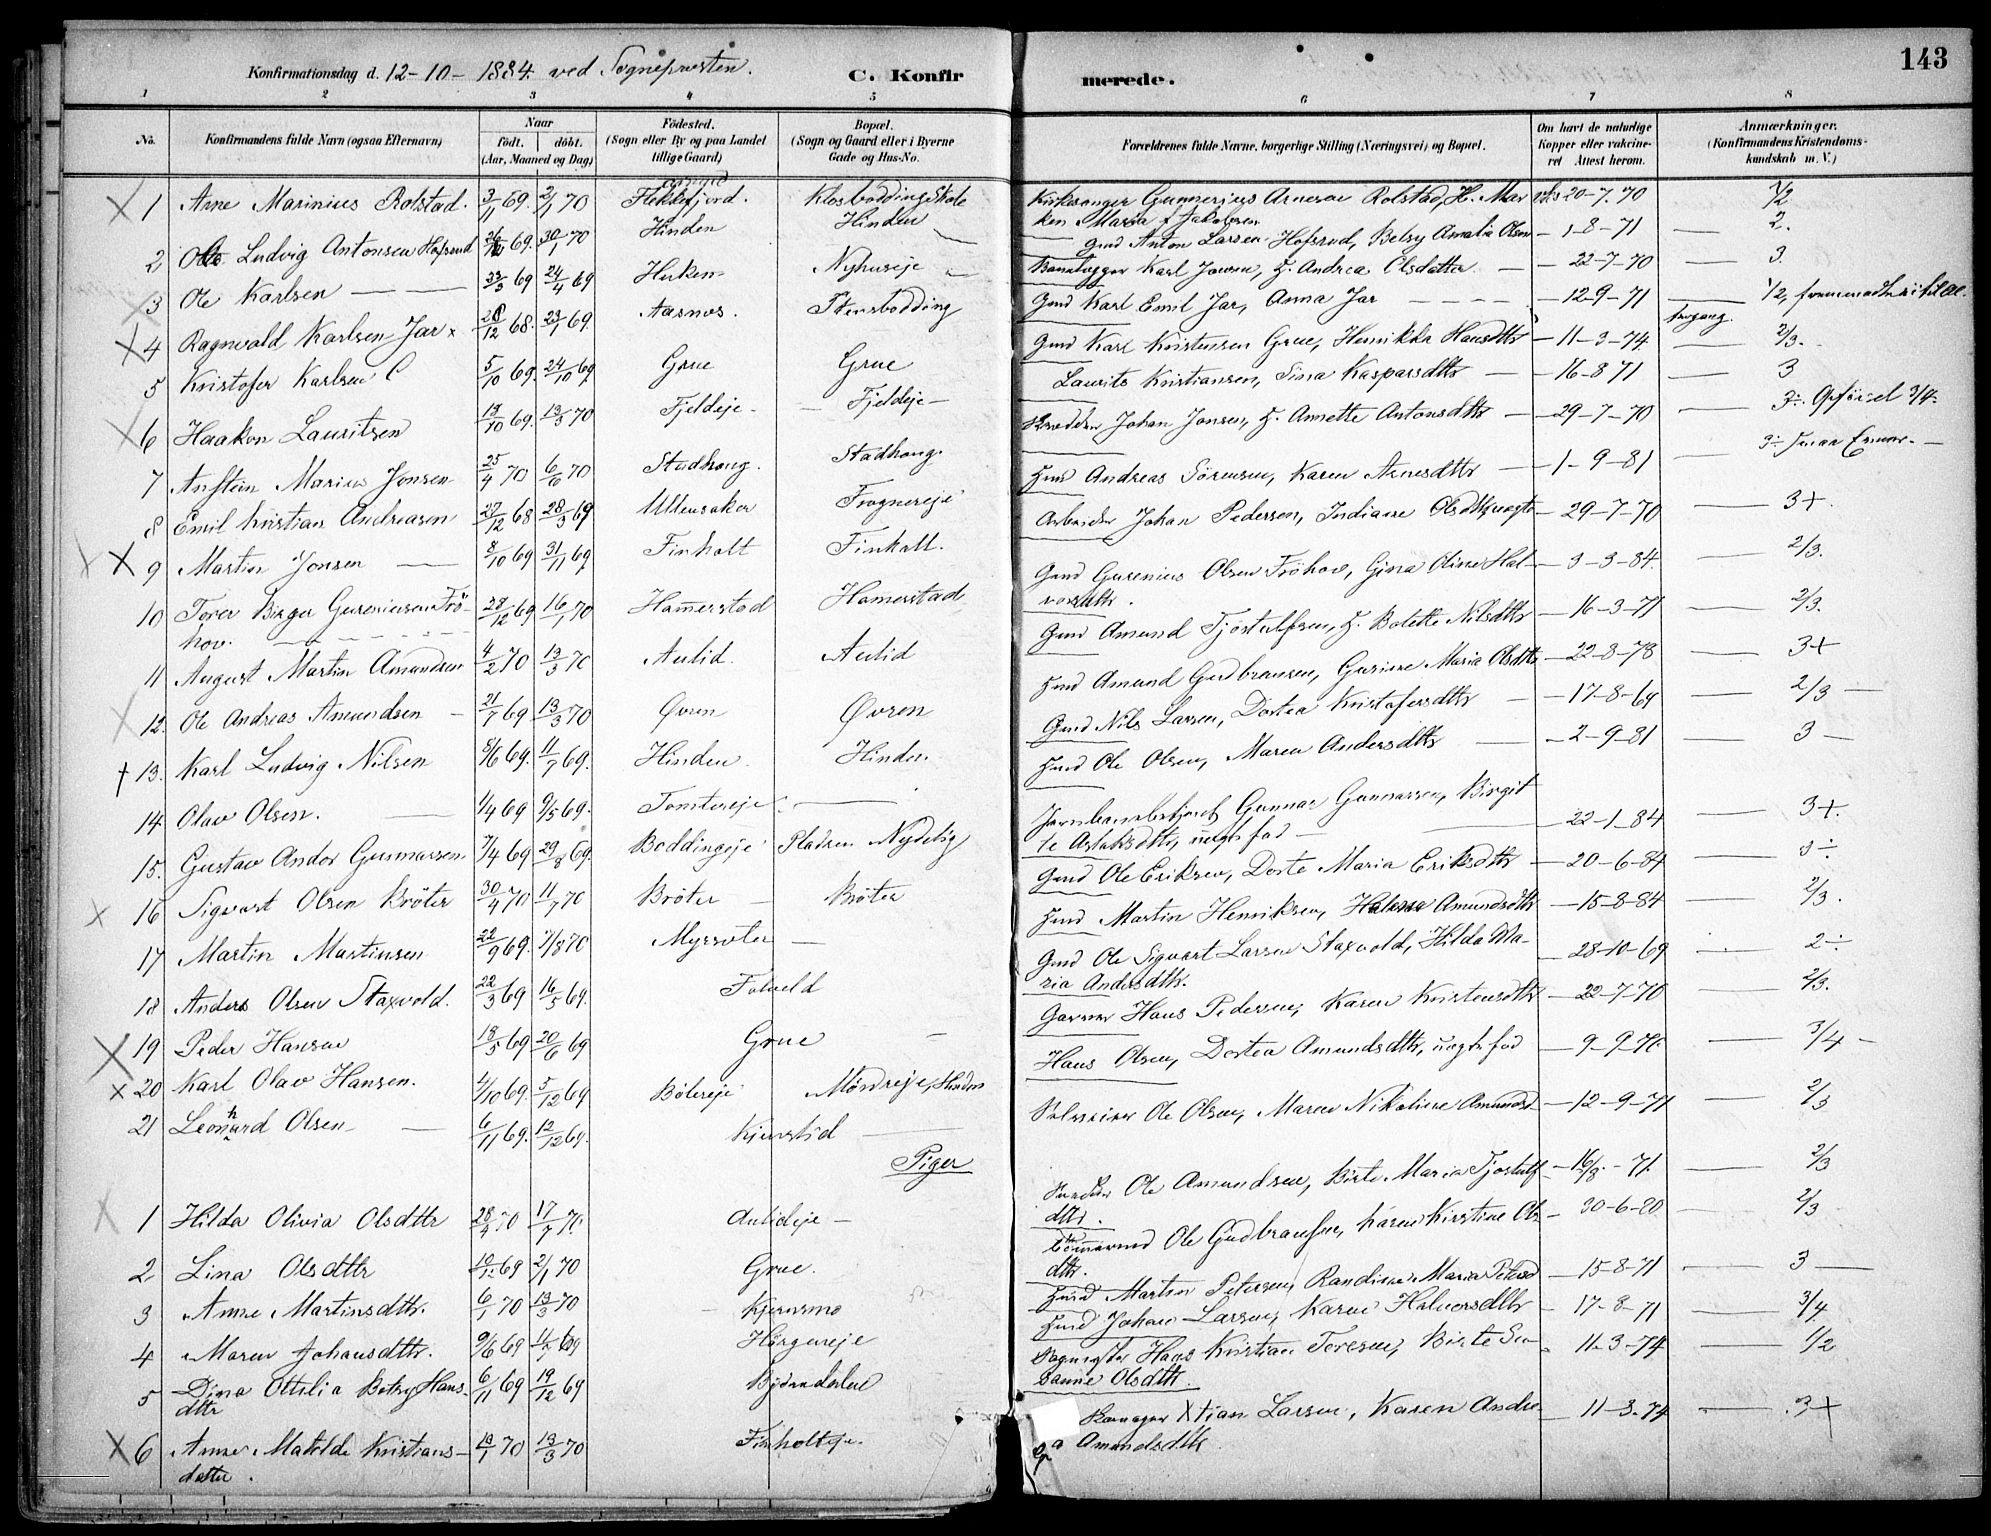 143
Konfirmationsdag d. 12-10-1884 ved Sognepresten.
C. Konfirmerede.
1 2 3 4 5 6 7 8
No.
Konfirmandens fulde Navn (ogsaa Efternavn)
Naar
født. døbt.
(Aar, Maaned og Dag)
Fødested.
(Sogn eller By og paa Landet
tillige Gaard)
Bopæl.
(Sogn og Gaard eller i Byerne
Gade og Hus-No.
Forældrenes fulde Navne, borgerlige Stilling (Næringsvei) og Bopæl.
Om havt de naturlige
Kopper eller vakcine-
ret Attest herom.
Anmærkninger.
(Konfirmandens Kristendoms-
kundskab m. V.)
1 Arne Marinius Rolstad. 3/11 69. 2/1 70 Flekkefjord. Kirkesanger Gunnerius Arnesen Rolstad, 20-7-70 1/2
2 Ludvig Antonsen Hofsrud 69. 30/1 70 Hinden Hinden Gmd Anton Larsen Hofsrud, Betsy Amalia Olsen - 1-8-71 2.
3 Ole Karlsen 69 24/4 69 Huken Nyhuseje Karl Jonsen, F. Andrea Olsdatter - 22-7-70 3
4 Ragnvald Karlsen Jar x 28/12 68. 23/1 69. Aarnes. Gmd Karl Emil Jar, Anna Jar 12-9-71 1/2
5 Kristofer Karlsen 5/10 69. 24/10 69 Grue Grue Gmd Karl Kristensen Grue, Henrikke Hansdtr - 11-3-74 2/3.
6 Haakon Lauritsen 13/10 69. 13/3 70 Fjeldeje - Fjeldeje - Laurits Kristiansen, Sina Kaspersdtr - 16-8 71 3
7 Anstein Marius Jonsen 25/4 70 6/6 70 Stadhaug. Stadhaug. Johan Jonsen, F. Annette Antonsdtr - 29-7-70
8 Emil Kristian Andreasen 27/12 68 28/3 69 Ullensaker Frognereje Andreas Sørensen, Karen Arnesdtr - 1-9-81
9 Martin Jonsen 8/10 69 31/11 69 Finholt Finholt. Arbeider Johan Pedersen, Indiane - 29-7-70 3+.
10 Torer Birger Gureniusen Frö-
hov. 28/12 69 16/1 70 Hamerstad Hamerstad Gmd Gurenius Olsen Fröhov, Gina Oline Hal-
vorsdtr. - 3-3-84. 2/3.
11 August Martin Amundsen 4/2 70 13/3 70 Aulid. Aulid Gmd Amund Tjostulfsen, F. Bolette Nilsdtr - 16-3-71 2/3.
12. Ole Andreas Amundsen - 21/7 69 13/3 70 Øvren Øvren Amund Gudbransen, Gurine Maria Olsdtr - 22-8-78 3+
13. Karl Ludvig Nilsen 8/6 69. 11/7 69. Hinden. Hinden. Gmd Nils Larsen, Dortea Kristofersdtr - 17-8-69 2/3 -
14. Olav Olsen. 1/4 69 9/5 69. Tomtereje Ole Olsen, Maren Andersdtr - 2-9-81 3 -
15. Gustav Andor Gunnarsen 7/4 69 29/8 69. Boddingeje Pladsen Nydelig Gunnar Gunnarsen, Birgit-
te Aslaksdtr, uegte fød - 22-1-84 3+.
16 Sigvart Olsen Bröter 30/4 70 11/7 70 Bröter - Bröter Gmd Ole Eriksen, Dorte Maria Eriksdtr - 20-6-84 3÷
17 Martin Martinsen 22/9 69. 7/8 70 Myrsæter - Martin Henriksen, Amundsdtr - 15-8-84 2/3.
18 Anders Olsen Staxvold. 22/3 69 16/5 69. Gmd Ole Sigvart Larsen Staxvold, Hilda Ma-
ria Andersdtr. - 28-10-69 2÷
19 Peder Hansen 18/5 69 20/6 69 Grue - Garver Hans Pedersen, Karen Kristensdtr - 22-7-70 2/3.
20 Karl Olav Hansen. 4/10 69. 5/12 69 Bölereje Möndreje, Hinden Hans Olsen, Dortea Amundsdtr, uegte fød - 9-9-70. 3/4 -
21 Leonhard Olsen - 6/11 69. 12/12 69. Kjenstid Ole Olsen, Maren Nikoline Amundsd - 12-9-71 2/3
Piger
1 Hilda Olivia Olsdttr 28/4 70 17/7 70. Aulideje - Ole Amundsen, Birte Maria Tjostulf-
dttr. - 16/8 - 71. 2/3
2 Lina Olsdttr 69 2/1 70 Grue. Tömmermd Ole Gudbransen, Karen Kirstine Ols-
dttr. - 30-6-80 2/3
3 Anne Martinsdttr. 6/1 70 13/3 70 - Kjernsmo Martin Petersen, Randine Maria - 15-8-71 3 -
4 Maren Johansdttr. 9/6 69 11/7 69 Johan Larsen, Karen Halvorsdttr - 17-8-71 3/4
5 Dina Ottilia Betsy Hans-
dttr 6/11 69 19/12 69 Hans Kristian Toresen, Birte Su-
sanne Olsdttr. 11-3-74 1/2
6 Anne Matilde Kristians-
datter. 70 13/3 70 Finholteje. Xtian Larsen, Karen Andrea
Amundsdttr. - 11-3-74 3+